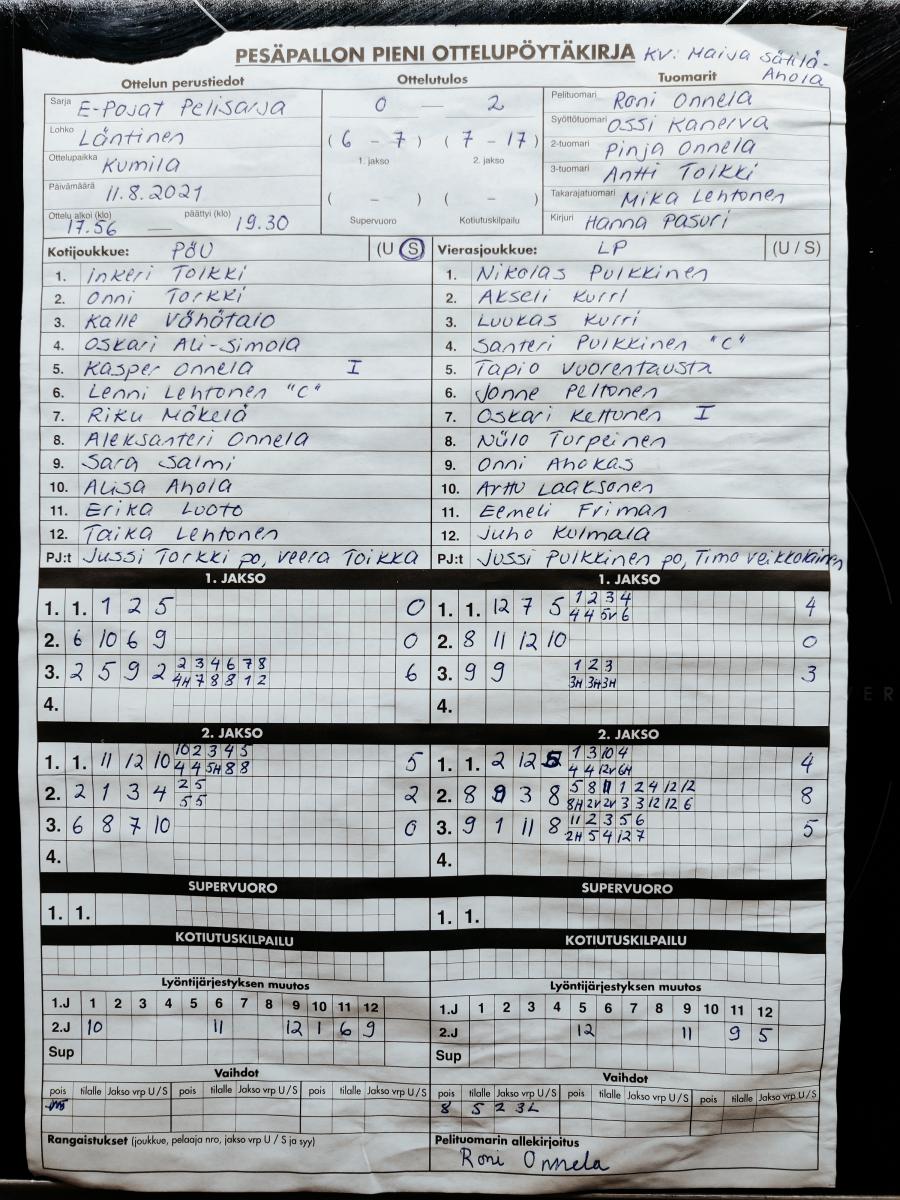 PESÄPALLON PIENI OTTELUPÖYTÄKIRJA KV: Maija Sätilä-Ahola
Ottelun perustiedot Ottelutulos Tuomarit
Sarja E-Pojat Pelisarja
Lohko Läntinen
Ottelupaikka Kumila
Päivämäärä 11.8.2021
Ottelu alkoi (klo) päättyi (klo)
17.56 — 19.30
0 — 2
( 6 - 7 ) ( 7 - 17 )
1. jakso 2. jakso
( - ) ( - )
Supervuoro Kotiutuskilpailu
Pelituomari Roni Onnela
Syöttötuomari Ossi Kanerva
2-tuomari Pinja Onnela
3-tuomari Antti Toikki
Takarajatuomari Mika Lehtonen
Kirjuri Hanna Pasuri
Kotijoukkue: PöU (U S)
1. Inkeri Toikki
2. Onni Torkki
3. Kalle Vähätalo
4. Oskari Ali-Simola
5. Kasper Onnela I
6. Lenni Lehtonen "C"
7. Riku Mäkelä
8. Aleksanteri Onnela
9. Sara Salmi
10. Alisa Ahola
11. Erika Luoto
12. Taika Lehtonen
PJ:t Jussi Torkki po, Veera Toikka
Vierasjoukkue: LP (U / S)
1. Nikolas Pulkkinen
2. Akseli Kurri
3. Luukas Kurri
4. Santeri Pulkkinen "C"
5. Tapio Vuorentausta
6. Jonne Peltonen
7. Oskari Kettunen I
8. Niilo Turpeinen
9. Onni Ahokas
10. Arttu Laaksonen
11. Eemeli Friman
12. Juho Kulmala
PJ:t Jussi Pulkkinen po, Timo Veikkolainen
1. JAKSO
1. 1. 1 2 5 0
2. 6 10 6 9 0
3. 2 5 9 2 2 3 4 6 7 8 6
4H 7 8 8 1 2
4.
2. JAKSO
1. 1. 11 12 10 10 2 3 4 5 5
4 4 5H 8 8
2. 2 1 3 4 2 5 2
5 5
3. 6 8 7 10 0
4.
SUPERVUORO
1. 1.
KOTIUTUSKILPAILU
1. JAKSO
1. 1. 12 7 5 1 2 3 4 4
4 4 5V 6
2. 8 11 12 10 0
3. 9 9 1 2 3 3
3H 3H 3H
4.
2. JAKSO
1. 1. 2 12 1 3 10 4 4
4 4 12V 6H
2. 8 9 3 8 5 8 11 1 2 4 12 12 8
8H 2V 2V 3 3 12 12 6
3. 9 1 11 8 11 2 3 5 6 5
2H 5 4 12 7
4.
SUPERVUORO
1. 1.
KOTIUTUSKILPAILU
Lyöntijärjestyksen muutos
1.J 1 2 3 4 5 6 7 8 9 10 11 12
2.J 10 11 12 1 6 9
Sup
Vaihdot
pois tilalle Jakso vrp U / S pois tilalle Jakso vrp U / S pois tilalle Jakso vrp U / S
Rangaistukset (joukkue, pelaaja nro, jakso vrp U / S ja syy)
Lyöntijärjestyksen muutos
1.J 1 2 3 4 5 6 7 8 9 10 11 12
2.J 12 11 9 5
Sup
Vaihdot
pois tilalle Jakso vrp U / S pois tilalle Jakso vrp U / S pois tilalle Jakso vrp U / S
8 5 2 3L
Pelituomarin allekirjoitus
Roni Onnela